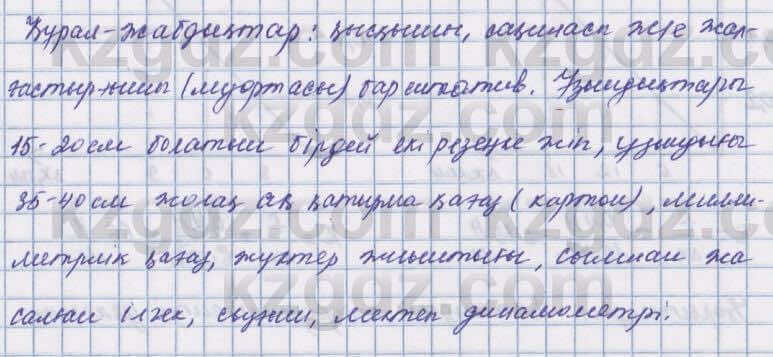 Құрал-жабдықтар: қысқышы, сақинасы және жал-
ғастырғышы (муфтасы) бар штатив. Ұзындықтары
15-20 см болатын бірдей екі резеңке жіп, ұзындығы
35-40 см жолақ ақ қатырма қағаз (картон), милли-
метрлік қағаз, жүктер жиынтығы, сымнан жа
салған ілгек, сызғыш, мектеп динамометрі.
kzgdz.com